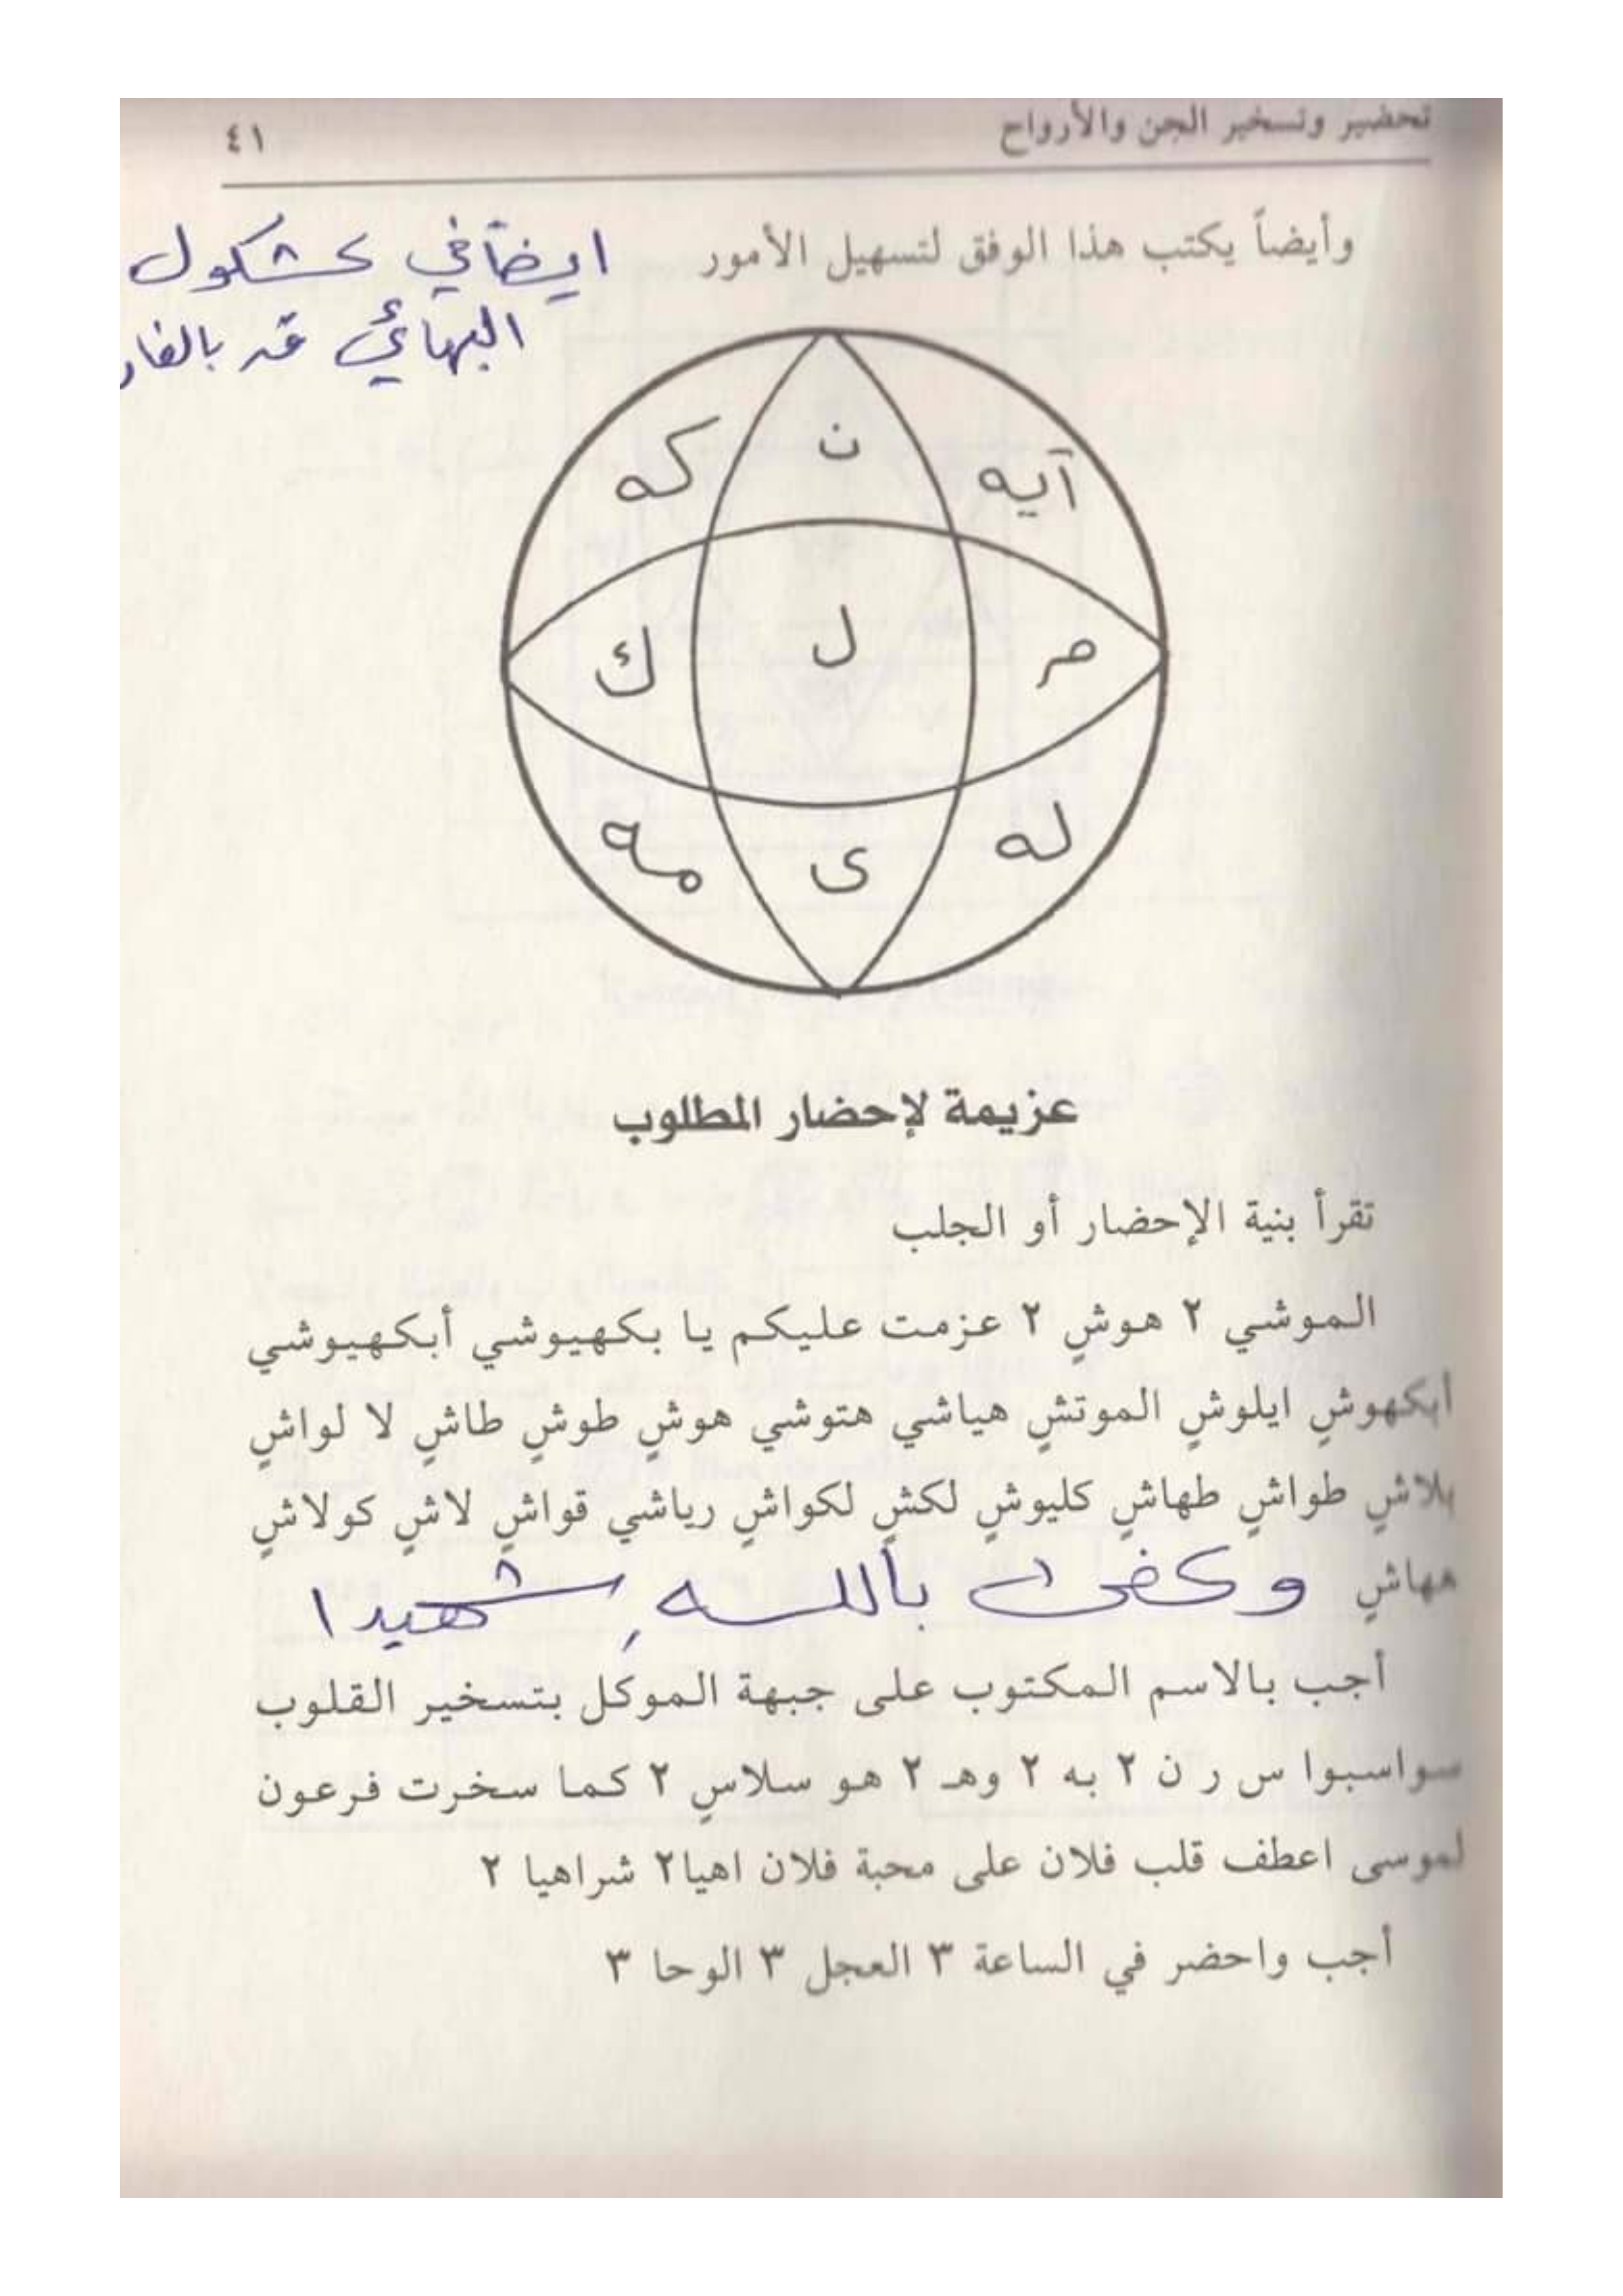 تحضير وتسخير الجن والأرواح ٤١
وأيضاً يكتب هذا الوفق لتسهيل الأمور
ايضاً في كشكول
البهائي بالفار
كه ن آيه
ك ل م
مه ى له
عزيمة لإحضار المطلوب
تقرأ بنية الإحضار أو الجلب
الموشي ٢ هوشٍ ٢ عزمت عليكم يا بكهيوشي أبكهيوشي
أبكهوشٍ ايلوشٍ الموتشٍ هياشي هتوشي هوشٍ طوشٍ طاشٍ لا لواشٍ
بلاشٍ طواشٍ طهاشٍ كليوشٍ لكشٍ لكواشٍ رياشي قواشٍ لاشٍ كولاشٍ
مهاشٍ وكفى باللـه شهيدا
أجب بالاسم المكتوب على جبهة الموكل بتسخير القلوب
سواسبوا س ر ن ٢ به ٢ وهـ ٢ هو سلاسٍ ٢ كما سخرت فرعون
لموسى اعطف قلب فلان على محبة فلان اهيا٢ شراهيا ٢
أجب واحضر في الساعة ٣ العجل ٣ الوحا ٣